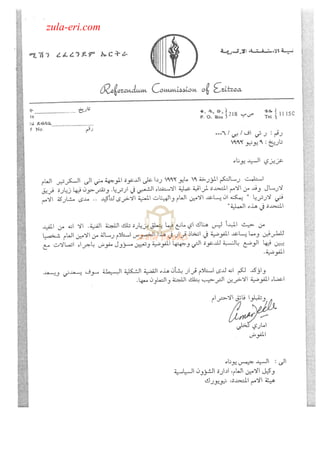 zula-eri.com
Referendum Commission of Eritrea
تاريخ
P. O. Box 218 ص.ب
Tel
رقم
رقم : ر تي / اف / بي / ٠٠٦
تاريخ : ٩ يونيو ١٩٩٢
عزيزي السيد يوناه
استلمت رسالتكم المؤرخة ١٩ مايو ١٩٩٢ ردا على الدعوة الموجهة مني الى السكرتير العام
لارسال وفد من الامم المتحدة لمراقبة عملية الاستفتاء الشعبي في ارتريا. وتقترحون فيها زيارة فريق
فني لارتريا " يمكنه ان يساعد الامين العام والهيئات المعنية الاخرى لتأكيد ... مدى مشاركة الامم
المتحدة في هذه العملية"
من حيث المبدأ ليس هناك اي مانع فيما يتعلق بزيارة تلك اللجنة الفنية. الا انه من المفيد
للطرفين ومما يساعد المفوضية في اتخاذ قرار في هذا الخصوص استلام رسالة من الامين العام شخصيا
يبين فيها الوضع بالنسبة للدعوة التي وجهتها المفوضية وتعيين مسؤول مفوض باجراء اتصالات مع
المفوضية.
واؤكد لكم انه لدى استلام قرار بشأن هذه القضية الشكلية البسيطة سوف يسعدني ويسعد
اعضاء المفوضية الاخرين الترحيب بتلك اللجنة والتعاون معها.
وتقبلوا فائق الاحترام
اماري تكلي
المفوض
الى : السيد جيمس يوناه
وكيل الامين العام، ادارة الشؤون السياسية
هيئة الامم المتحدة، نيويورك